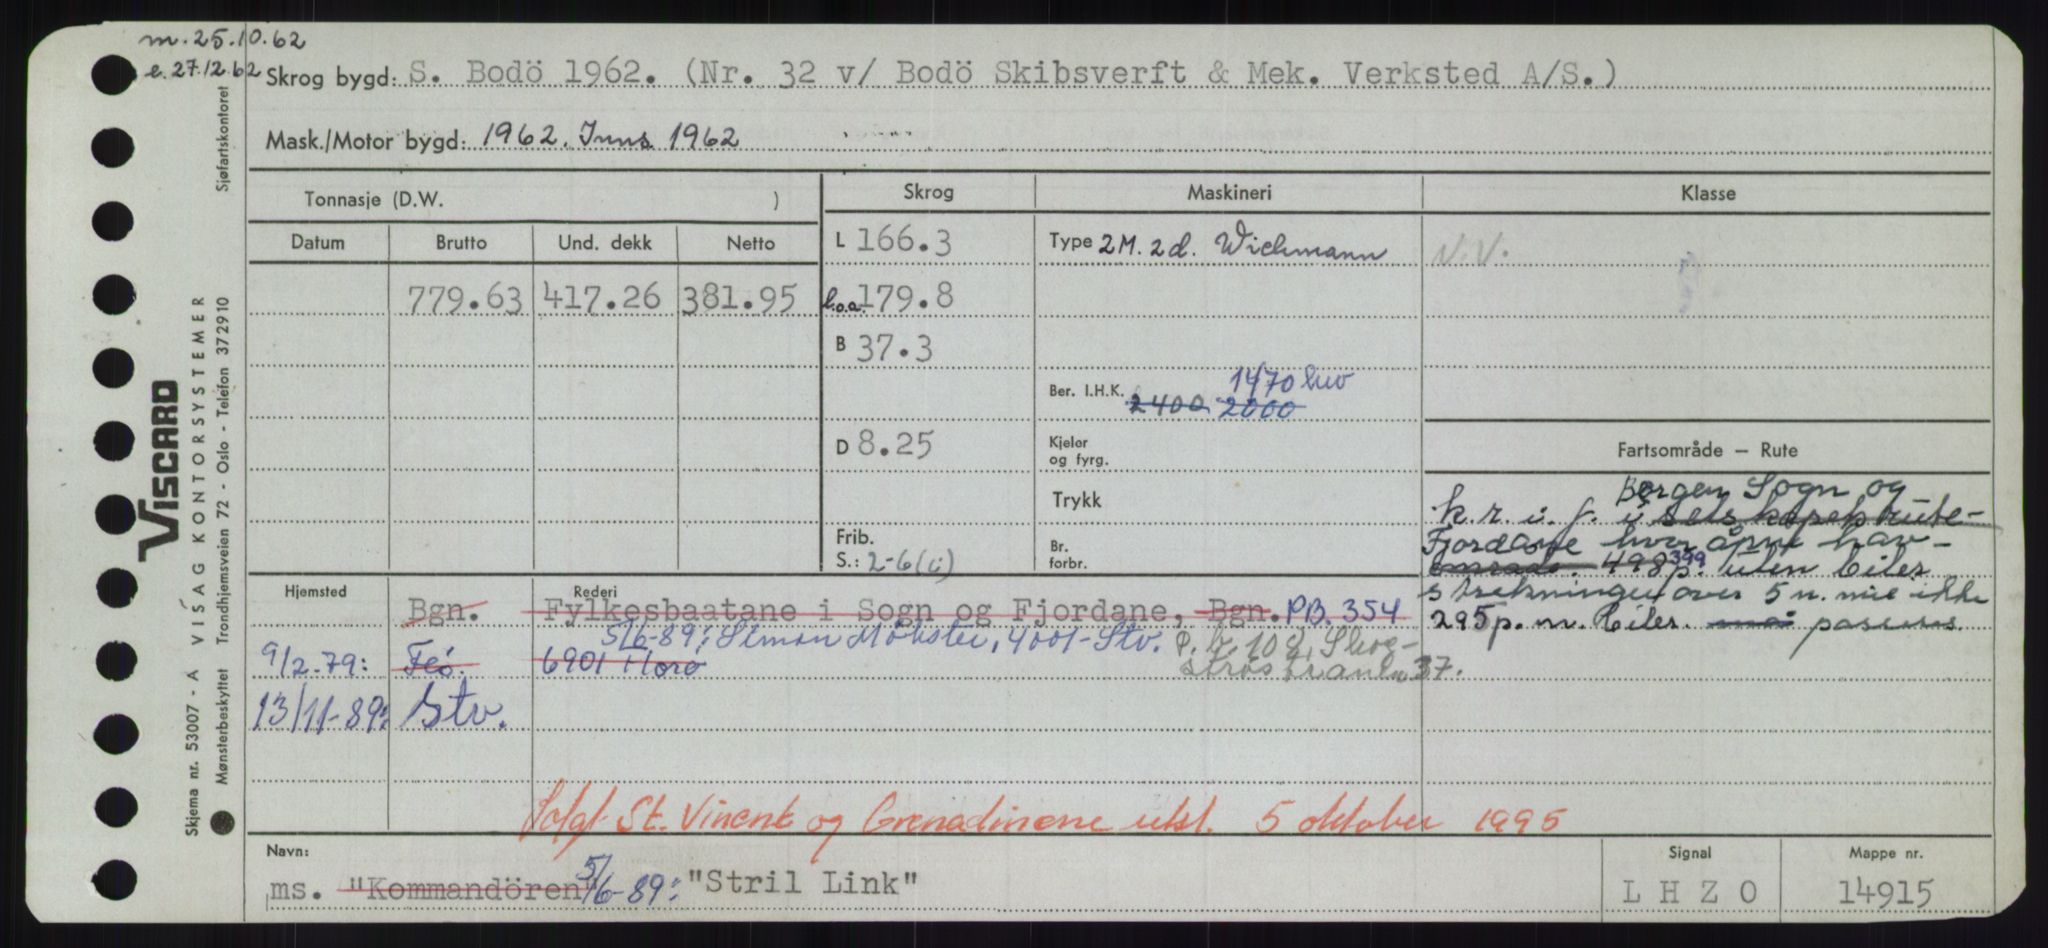 m. 25.10.62
e. 27.12.62
Skrog bygd: S. Bodö 1962. (Nr. 32 v/ Bodö Skibsverft & Mek. Verksted A/S.)
Mask./Motor bygd: 1962. Inns. 1962
Tonnasje (D.W. )
Skrog
Maskineri
Klasse
Datum
Brutto
Und. dekk
Netto
L 166.3
Type 2M. 2d. Wichmann
N.V.
779.63
417.26
381.95
l.o.a. 179.8
B 37.3
Ber. I.H.K. 2400 2000 1470 hw
D 8.25
Kjeler og fyrg.
Fartsområde — Rute
Trykk
Bergen Sogn og
k.r. i. f. i selskapets rute-
Frib.
S.: 2-6 (i)
Br. forbr.
Fjordane hvor åpne hav-
område. 498 399 p. uten biler
Hjemsted
Rederi
Bgn.
Fylkesbaatane i Sogn og Fjordane, Bgn. PB. 354
strekninger over 5 n. mil ikke
295 p. m. biler. passeres.
5/6-89: Simon Møkster, 4001-Stv. P.b. 108,
9/2-79: Feö. 6901 Florø
37.
13/11-89: Stv.
Solgt St. Vincent og Grenadinene utsl. 5 oktober 1995
Navn:
ms. "Kommandören" 5/6-89: "Stril Link"
Signal
L H Z O
Mappe nr.
14915
VISCARD
A VISAG KONTORSYSTEMER
Sjøfartskontoret
Skjema nr. 53007 - A
Mønsterbeskyttet Trondhjemsveien 72 - Oslo - Telefon 372910